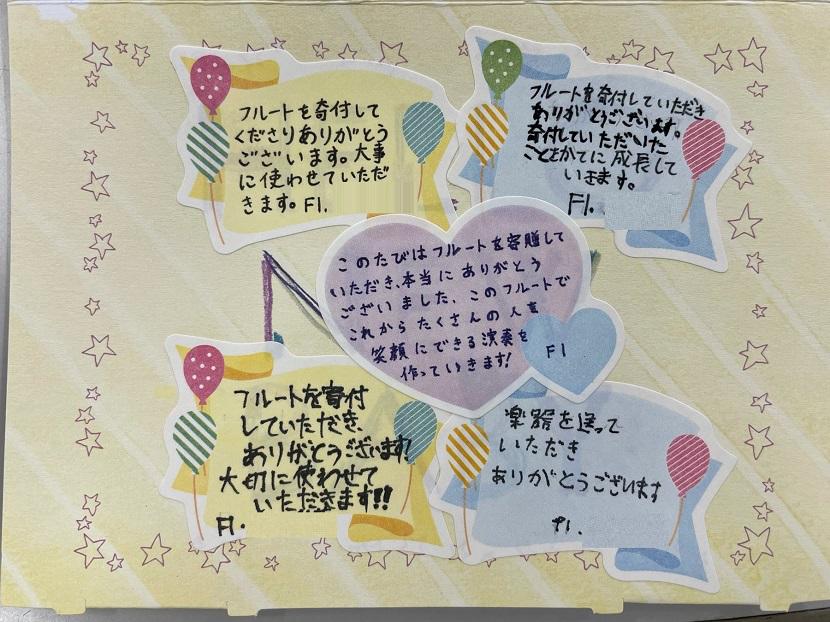 フルートを寄付して
くださりありがとう
ございます。大事
に使わせていただ
きます。Fl.
フルートを寄付していただき
ありがとうございます。
寄付していただいた
ことをかてに成長して
いきます。
Fl.
このたびはフルートを寄贈して
いただき、本当にありがとう
ございました。このフルートで
これからたくさんの人を
笑顔にできる演奏を
作っていきます!
Fl
フルートを寄付
していただき、
ありがとうございます!
大切に使わせて
いただきます!!
Fl.
楽器を送って
いただき
ありがとうございます
Fl.